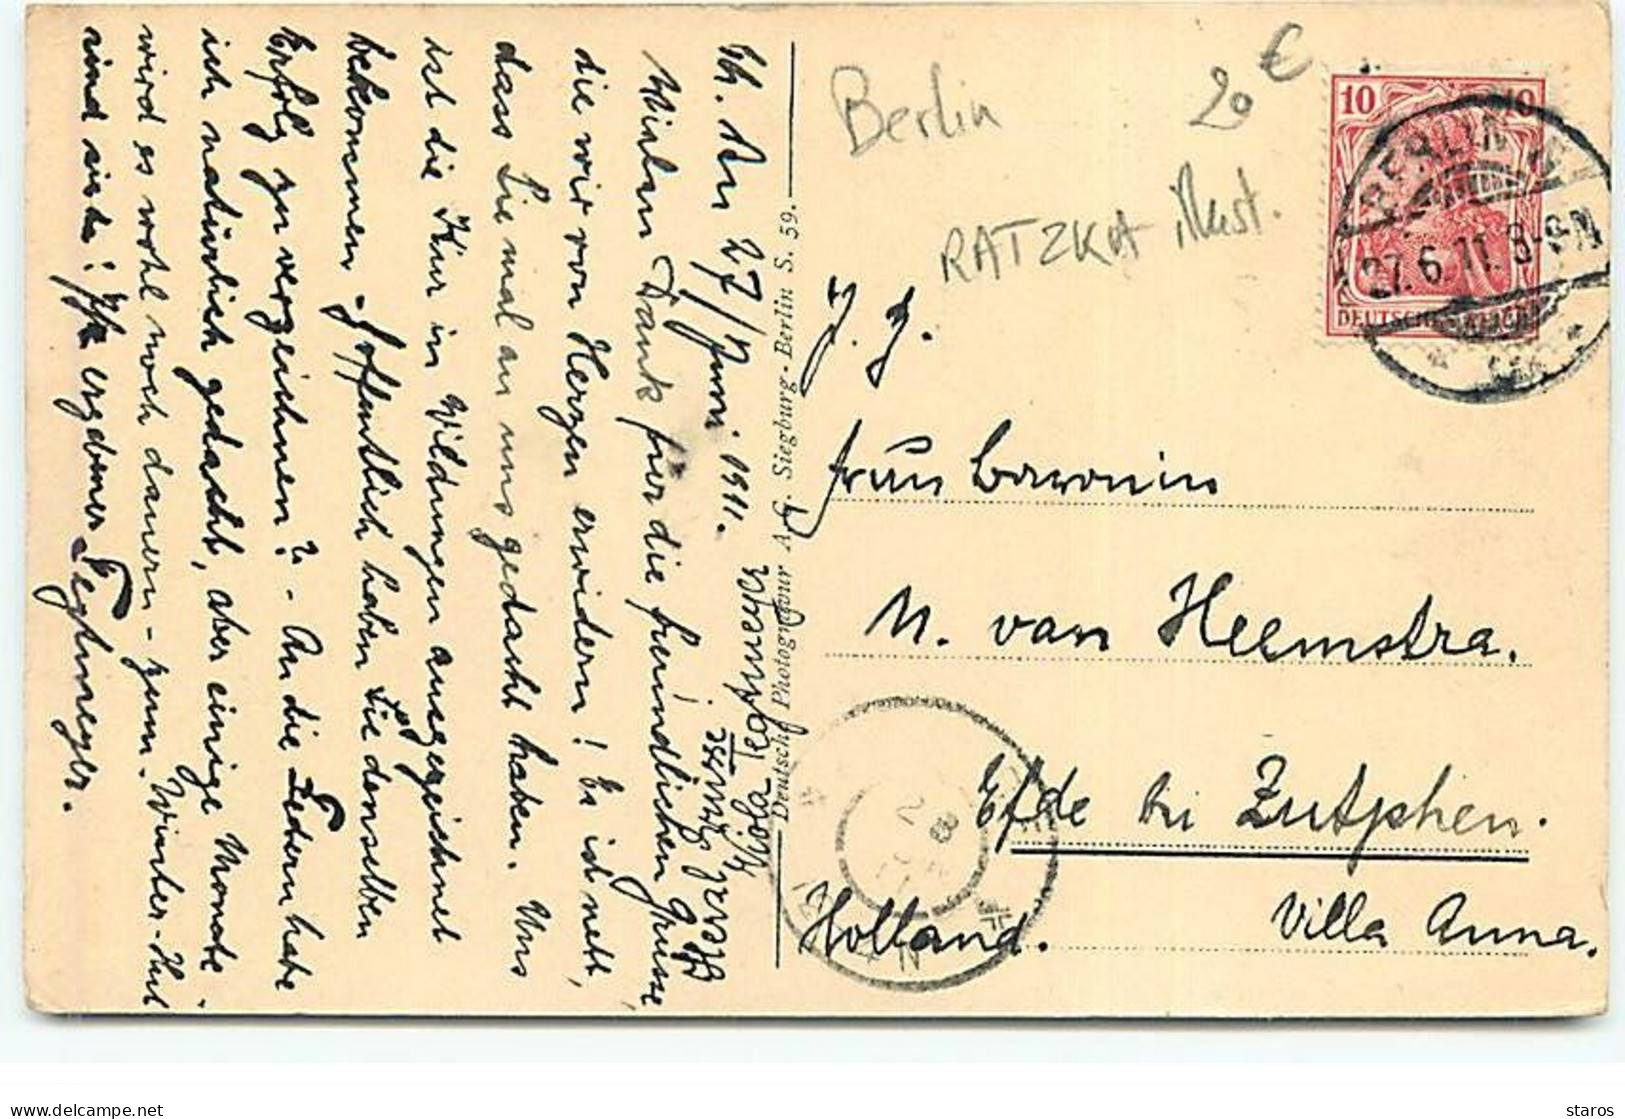 27/Juni. 1911.
Vielen Dank für die freundlichen Grüsse,
die wir von Herzen erwidern! Es ist nett,
dass Sie mal an uns gedacht haben. Uns
ist die Kur in Wildungen ausgezeichnet
bekommen. Hoffentlich haben Sie denselben
Erfolg zu verzeichnen? - An die Federn habe
ich natürlich gedacht, aber einige Monate
wird es wohl noch dauern - zum Winter-Hut
sind sie da! Ihr ergebener Tegtmeyer.
Herzl. Grüsse
Viola Tegtmeyer
Deutsche Photogravur A.G. Siegburg-Berlin S. 59.
Berlin
20 €
RATZKA illust.
10 10
DEUTSCHES REICH
BERLIN
27.6.11. 8-9N
J. J.
Frau Baronin
M. van Heemstra.
Efde bei Zutphen.
Holland.
Villa Anna.
28
staros